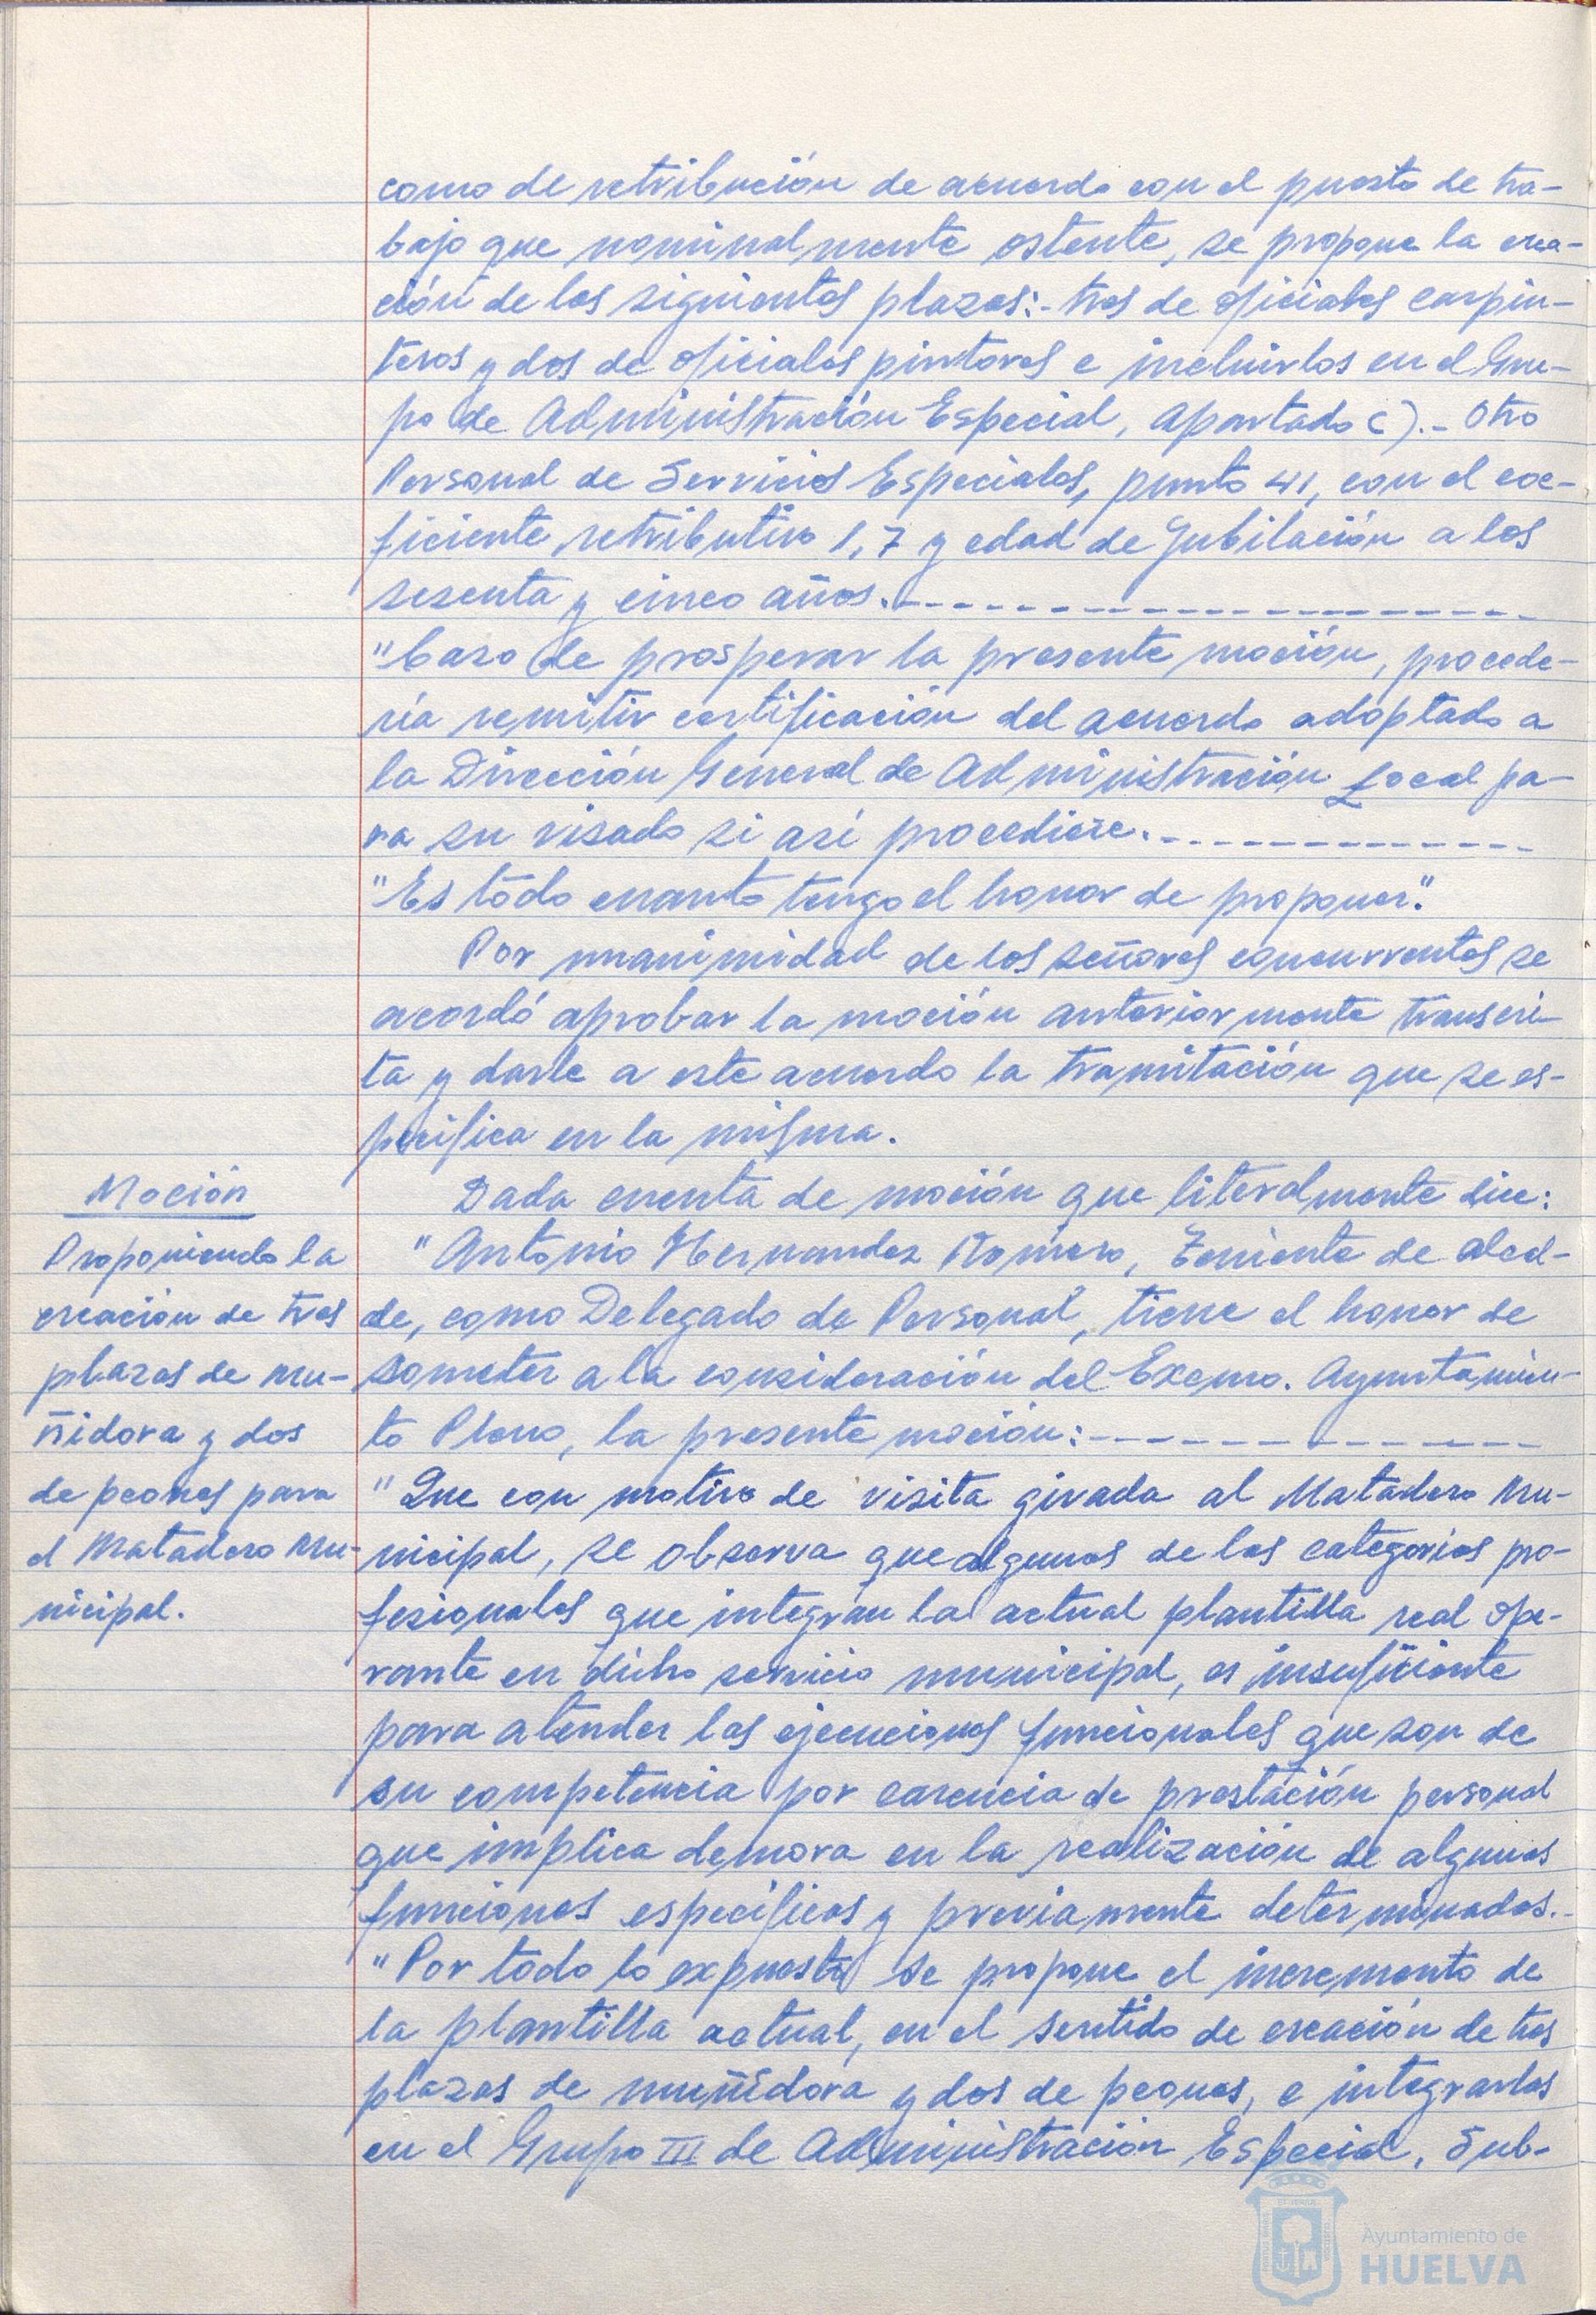 como de retribución de acuerdo con el puesto de tra-
bajo que nominalmente ostente, se propone la crea-
ción de las siguientes plazas:- tres de oficiales carpin-
teros y dos de oficiales pintores e incluirlos en el Gru-
po de Administración Especial, apartado C).- Otro
Personal de Servicios Especiales, punto 41, con el coe-
ficiente retributivo 1,7 y edad de Jubilación a los
sesenta y cinco años.- - - - - - - - - - - - - - - -
"Caso de prosperar la presente moción, procede-
ría remitir certificación del acuerdo adoptado a
la Dirección General de Administración Local pa-
ra su visado si así procediere.- - - - - - - - - - -
"Es todo cuanto tengo el honor de proponer".
Por unanimidad de los señores concurrentes se
acordó aprobar la moción anteriormente transcri-
ta y darle a este acuerdo la tramitación que se es-
pecifica en la misma.
Moción
Proponiendo la
creación de tres
plazas de mu-
ñidora y dos
de peones para
el Matadero Mu-
nicipal.
Dada cuenta de moción que literalmente dice:
"Antonio Hernandez Romero, Teniente de Alcal-
de, como Delegado de Personal, tiene el honor de
someter a la consideración del Excmo. Ayuntamien-
to Pleno, la presente moción:- - - - - - - - - - - -
"Que con motivo de visita girada al Matadero Mu-
nicipal, se observa que algunas de las categorías pro-
fesionales que integran la actual plantilla real ope-
rante en dicho servicio municipal, es insuficiente
para atender las ejecuciones funcionales que son de
su competencia por carencia de prestación personal
que implica demora en la realización de algunas
funciones específicas y previamente determinadas.-
"Por todo lo expuesto se propone el incremento de
la plantilla actual, en el sentido de creación de tres
plazas de muñidora y dos de peones, e integrarlas
en el Grupo III de Administración Especial, Sub-
Ayuntamiento de
HUELVA